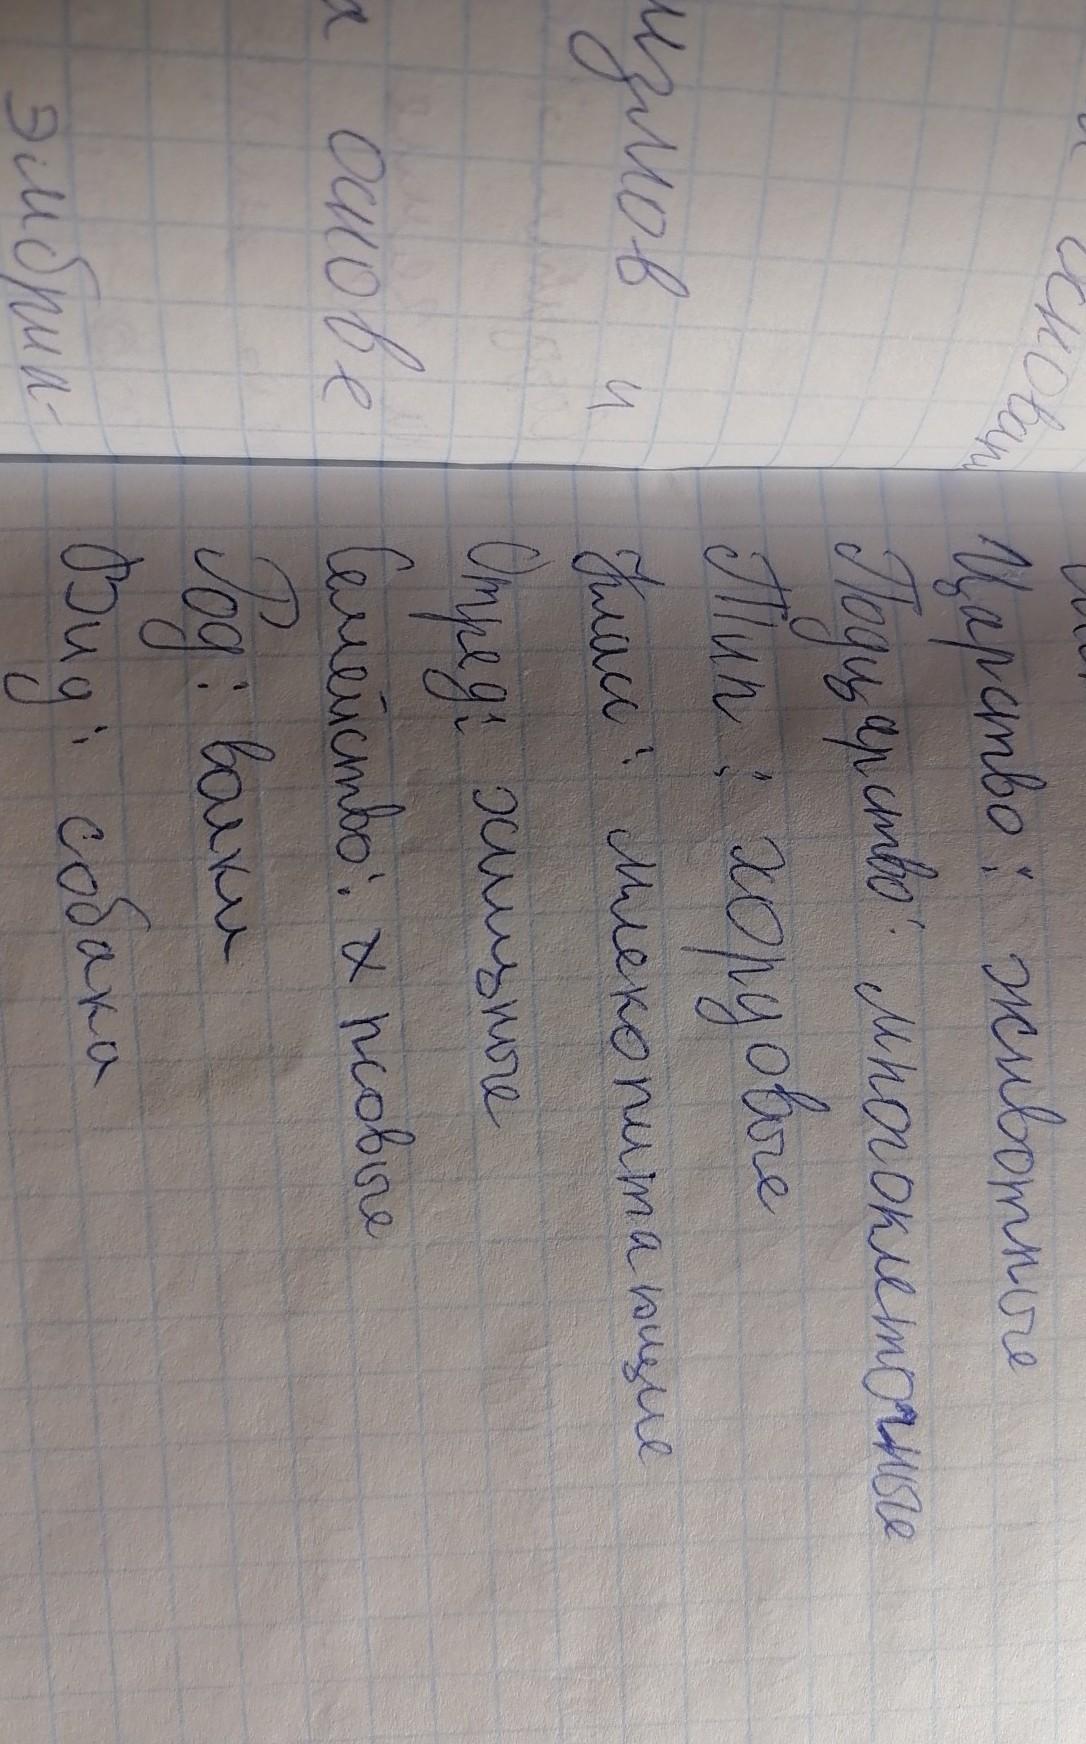 основан
измов и
х основе
эмбрии-
Царство: животные
Подцарство: многоклеточные
Тип: хорудовые
Класс: млекопитающие
Отред: хищные
Семейство: х псовые
Род: волки
Вид: собака